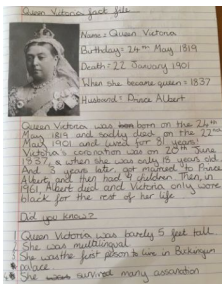 Queen Victoria fact file
Name = Queen Victoria
Birthday = 24th May 1819
Death = 22 January 1901
When she became queen = 1837
Husband = Prince Albert
Queen Victoria was born on the 24th
May 1819 and sadly died on the 22nd
May 1901 and lived for 81 years.
Victoria's coronation was on 28th June
1837, a when she was only 18 years old.
And 3 years later, got married to Prince
Albert and then had 9 children. Then, in
1961, Albert died and Victoria only wore
black for the rest of her life
Did you know?
Queen Victoria was barely 5 feet tall
She was multilingual
She was the first person to live in Buckingham
palace
She survived many